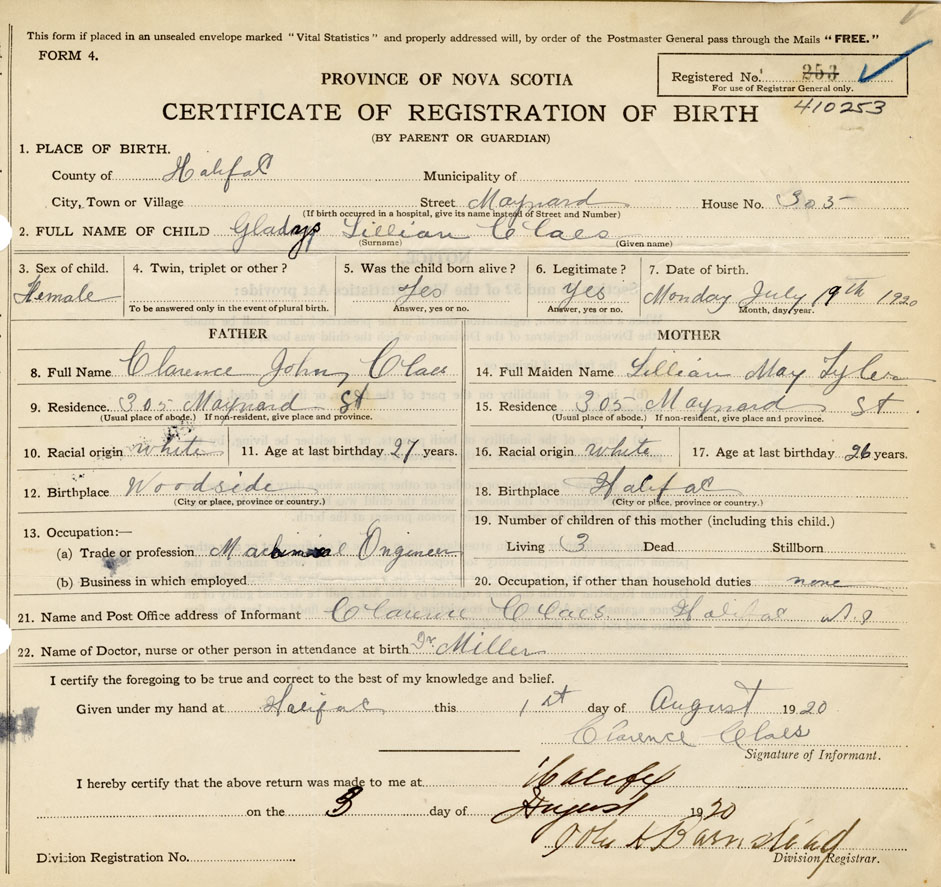 This form if placed in an unsealed envelope marked "Vital Statistics" and properly addressed will, by order of the Postmaster General pass through the Mails "FREE."
FORM 4.
Registered No. 253
For use of Registrar General only.
410253
PROVINCE OF NOVA SCOTIA
CERTIFICATE OF REGISTRATION OF BIRTH
(BY PARENT OR GUARDIAN)
1. PLACE OF BIRTH.
County of Halifax Municipality of
City, Town or Village Street Maynard House No. 305
(If birth occurred in a hospital, give its name instead of Street and Number)
2. FULL NAME OF CHILD Gladys Lillian Claes
(Surname) (Given name)
3. Sex of child. Female
4. Twin, triplet or other?
To be answered only in the event of plural birth.
5. Was the child born alive? Yes
Answer, yes or no.
6. Legitimate? Yes
Answer, yes or no.
7. Date of birth. Monday July 19th 1920
Month, day, year.
FATHER
8. Full Name Clarence John Claes
9. Residence. 305 Maynard St
(Usual place of abode.) If non-resident, give place and province.
10. Racial origin white 11. Age at last birthday 27 years.
12. Birthplace Woodside
(City or place, province or country.)
13. Occupation:—
(a) Trade or profession Engineer
(b) Business in which employed
MOTHER
14. Full Maiden Name Lillian May Tyler
15. Residence 305 Maynard St.
(Usual place of abode.) If non-resident, give place and province.
16. Racial origin white 17. Age at last birthday 26 years.
18. Birthplace Halifax
(City or place, province or country.)
19. Number of children of this mother (including this child.)
Living 3 Dead Stillborn
20. Occupation, if other than household duties none
21. Name and Post Office address of Informant Clarence Claes. Halifax N.S
22. Name of Doctor, nurse or other person in attendance at birth Dr. Miller
I certify the foregoing to be true and correct to the best of my knowledge and belief.
Given under my hand at Halifax this 1st day of August 1920
Clarence Claes
Signature of Informant.
I hereby certify that the above return was made to me at Halifax
on the 3 day of August 1920
John A Barnstead
Division Registrar.
Division Registration No.